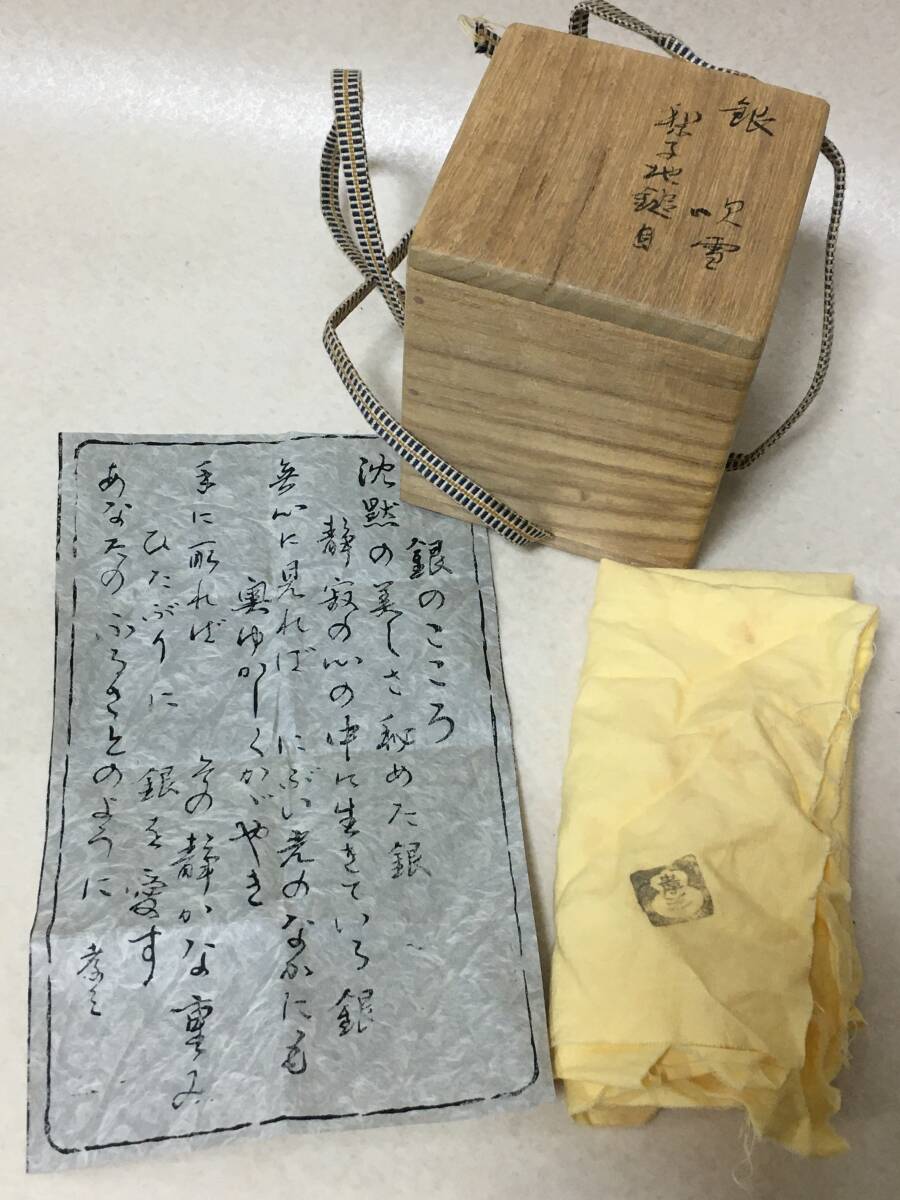 銀 吹雪
梨子地鎚目
銀のこころ
沈黙の美しさ秘めた銀
静寂の心の中に生きている銀
無心に見れば にぶい光のなかにも
奥ゆかしくかゞやき
手に取れば その静かな重み
ひたぶりに 銀を愛す
あなたのふるさとのように 孝三